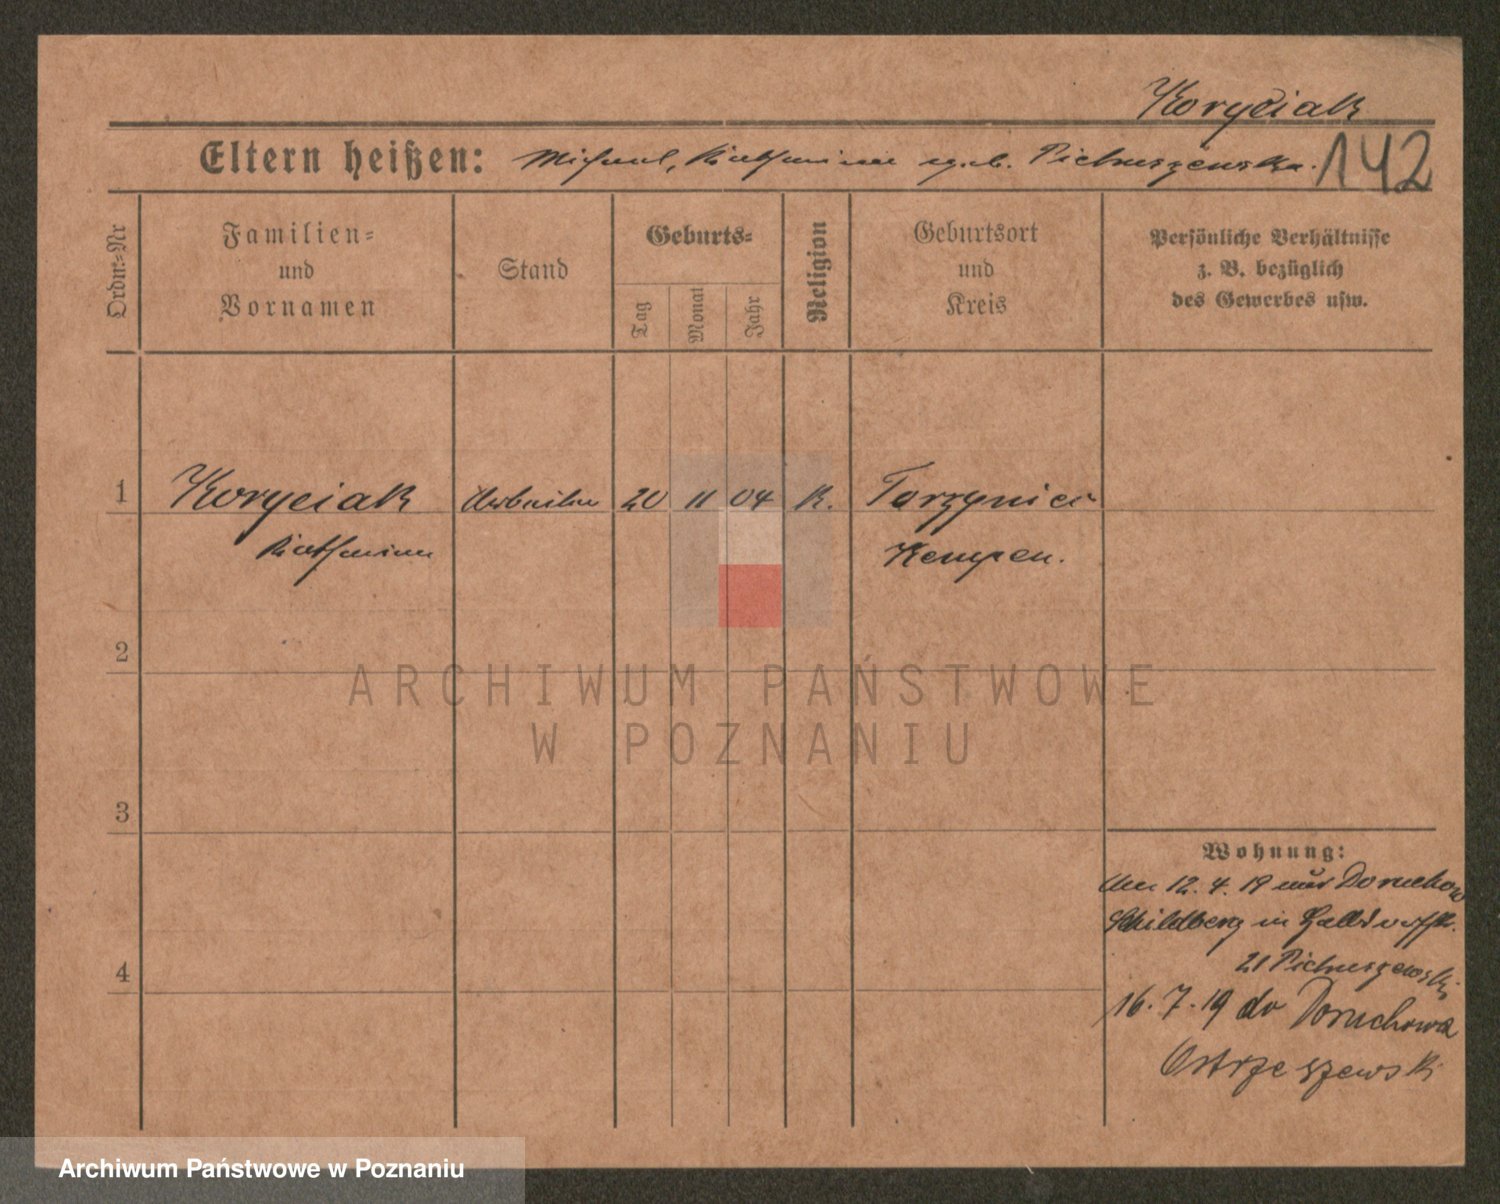 Koryciak
Eltern heißen: Michael, Katharina geb. Pietruszewska.
142
Ordn.-Nr
Familien-
und
Vornamen
Stand
Geburts-
Tag
Monat
Jahr
Religion
Geburtsort
und
Kreis
Persönliche Verhältnisse
z. B. bezüglich
des Gewerbes usw.
1 Koryciak Arbeiter 20 11 04 K.
Katharina Kempen.
2
ARCHIWUM PAŃSTWOWE
W POZNANIU
3
Wohnung:
12. 4. 19 aus Doruchow
Schildberg in
4
21 Pietruszewski
16. 7. 19 do Doruchowa
Ostrzeszewski
Archiwum Państwowe w Poznaniu